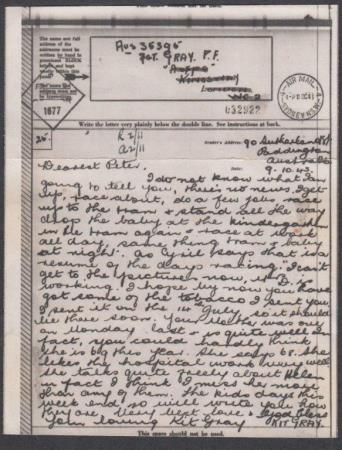 The name and full
address of the
addressee must be
written in
BLOCK
Aus 36395
SGT. GRAY. P.F.
Kingsway
London
W.C.2
AIR MAIL
SYDNEY N.S.W.
1677
032922
Write the letter very plainly below the double line. See instructions at back.
25.
R 2/11
A 2/11
Sender's Address:
90 Sutherland St
Paddington
Australia
9.10.43
Dearest Peter,
I do not know what I'm
going to tell you, there's no news. I get
up, race about, do a few jobs race
up to the tram & stand all the way
drop the baby at the kindergarten
in the tram again & race at work
all day, same thing tram & baby
at night. As Cyril says that is a
resume of the days racing. I can't
get to the pictures now, is D.
working. I hope by now you have
got some of the tobacco I sent you
I sent it on the 14 July, so it should
be there soon. Your Mother was out
on Monday last & is quite well. In
fact, you could hardly think
she is 68 this year. She says 68. She
likes the hospital work very well
she talks quite freely about Helen
in fact I think I miss her more
than any of them. The kids days this
week end so will write you how
they are. Very best love & God Bless
Your loving Kit Gray.
KIT GRAY.
This space should not be used.